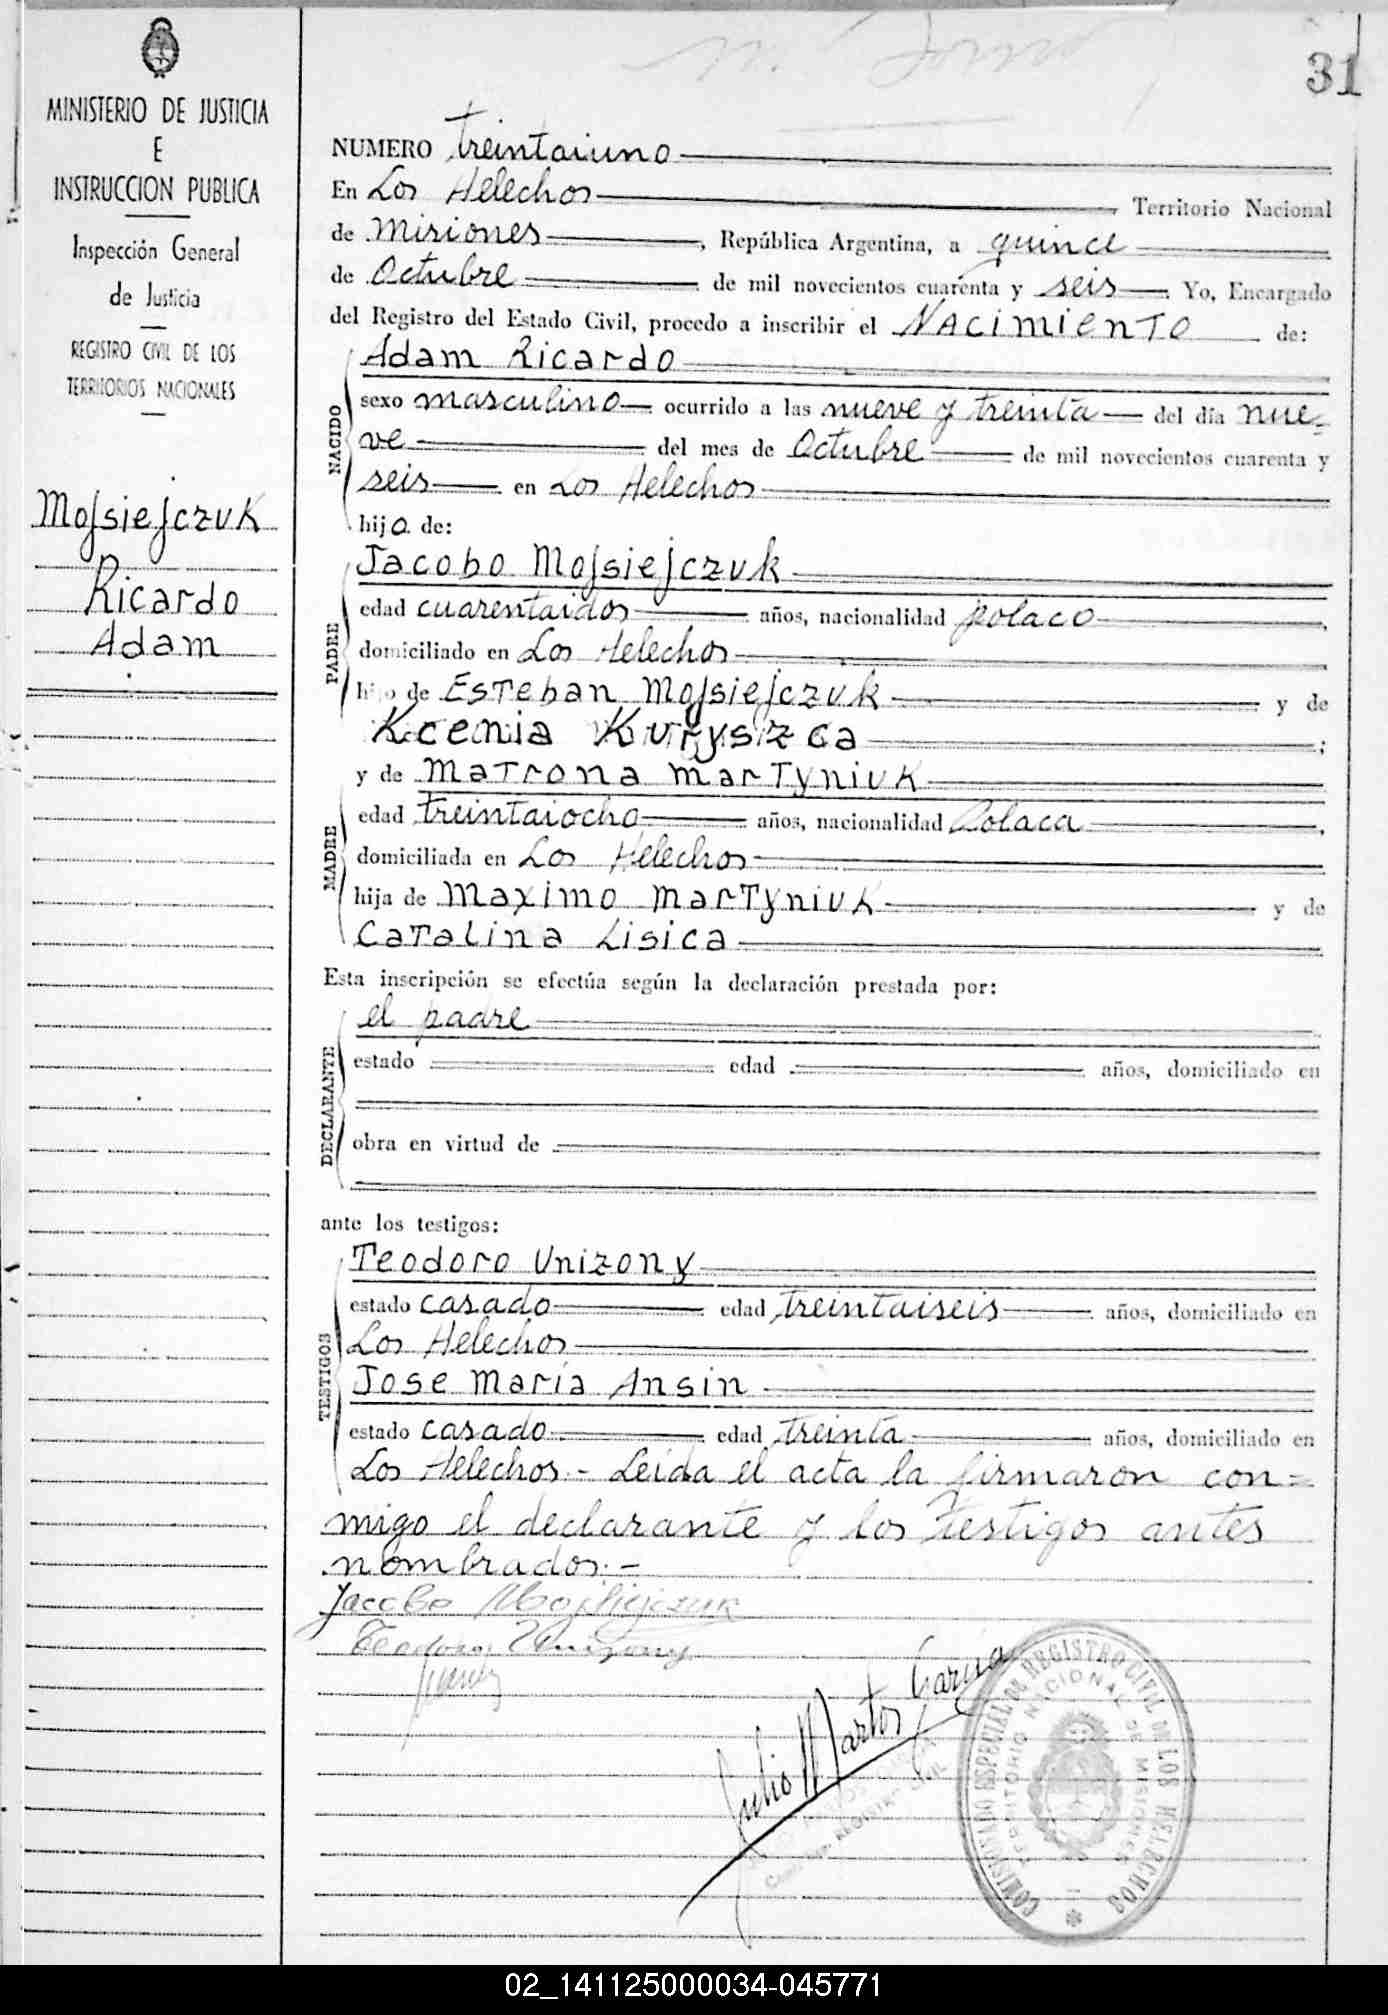 31
MINISTERIO DE JUSTICIA
E
INSTRUCCION PUBLICA
Inspección General
de Justicia
REGISTRO CIVIL DE LOS
TERRITORIOS NACIONALES
Mojsiejczuk
Ricardo
Adam
NUMERO treintaiuno
En Los Helechos Territorio Nacional
de Misiones, República Argentina, a quince
de Octubre de mil novecientos cuarenta y seis Yo, Encargado
del Registro del Estado Civil, procedo a inscribir el NACIMIENTO de:
NACIDO
Adam Ricardo
sexo masculino ocurrido a las nueve y treinta del día nue=
ve del mes de Octubre de mil novecientos cuarenta y
seis en Los Helechos
hijo de:
PADRE
Jacobo Mojsiejczuk
edad cuarentaidos años, nacionalidad polaco,
domiciliado en Los Helechos
hijo de Esteban Mojsiejczuk y de
Kcenia Kuryszca;
y de Matrona Martyniuk
MADRE
edad treintaiocho años, nacionalidad Polaca,
domiciliada en Los Helechos
hija de Maximo Martyniuk y de
Catalina Lisica
Esta inscripción se efectúa según la declaración prestada por:
DECLARANTE
el padre
estado edad años, domiciliado en
obra en virtud de
ante los testigos:
TESTIGOS
Teodoro Unizony
estado casado edad treintaiseis años, domiciliado en
Los Helechos
Jose María Ansin
estado casado edad treinta años, domiciliado en
Los Helechos.- Leída el acta la firmaron con=
migo el declarante y los testigos antes
nombrados.-
Jacobo Mojsiejczuk
Teodoro Unizony
Julio Martos García
COMISIONADO ESPECIAL DE REGISTRO CIVIL DE LOS HELECHOS
TERRITORIO NACIONAL DE MISIONES
02_141125000034-045771